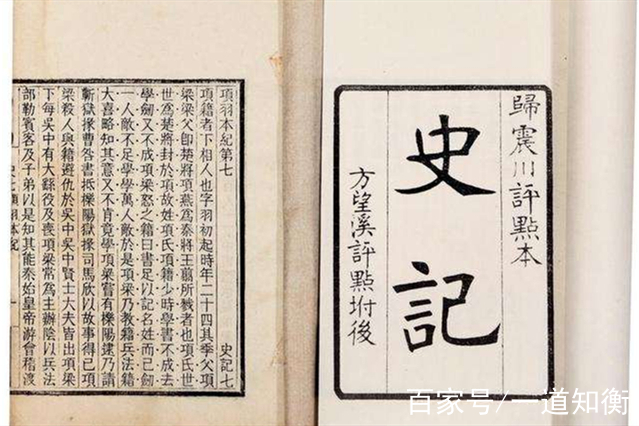 歸震川評點本
史記
方望溪評點坿後
項羽本紀第七 史記七
項籍者下相人也字羽初起時年二十四其季父項
梁梁父即楚將項燕爲秦將王翦所戮者也項氏世
世爲楚將封於項故姓項氏項籍少時學書不成去
學劒又不成項梁怒之籍曰書足以記名姓而已劒
一人敵不足學學萬人敵於是項梁乃教籍兵法籍
大喜略知其意又不肯竟學項梁嘗有櫟陽逮乃請
蘄獄掾曹咎書抵櫟陽獄掾司馬欣以故事得已項
梁殺人與籍避仇於吳中吳中賢士大夫皆出項梁
下每吳中有大繇役及喪項梁常爲主辦陰以兵法
部勒賓客及子弟以是知其能秦始皇帝游會稽渡
百家号/一道知衡